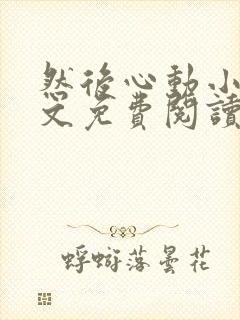 然後心動小
文免費閱讀
蜉蝣落曇花